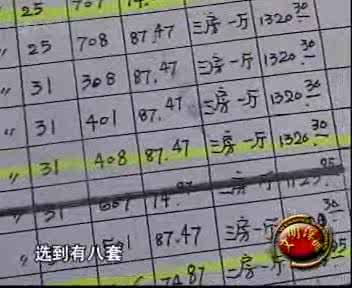 25 707 74.
" 25 708 87.47 三房一厅 1320.30
" 31 308 87.47 三房一厅 1320.30
" 31 401 87.47 三房一厅 1320.30
" 31 408 87.47 三房一厅 1320.30
" 31 607 74.87 三房一厅 1125.95
87.47 三房一厅
74.87 三房
选到有八套